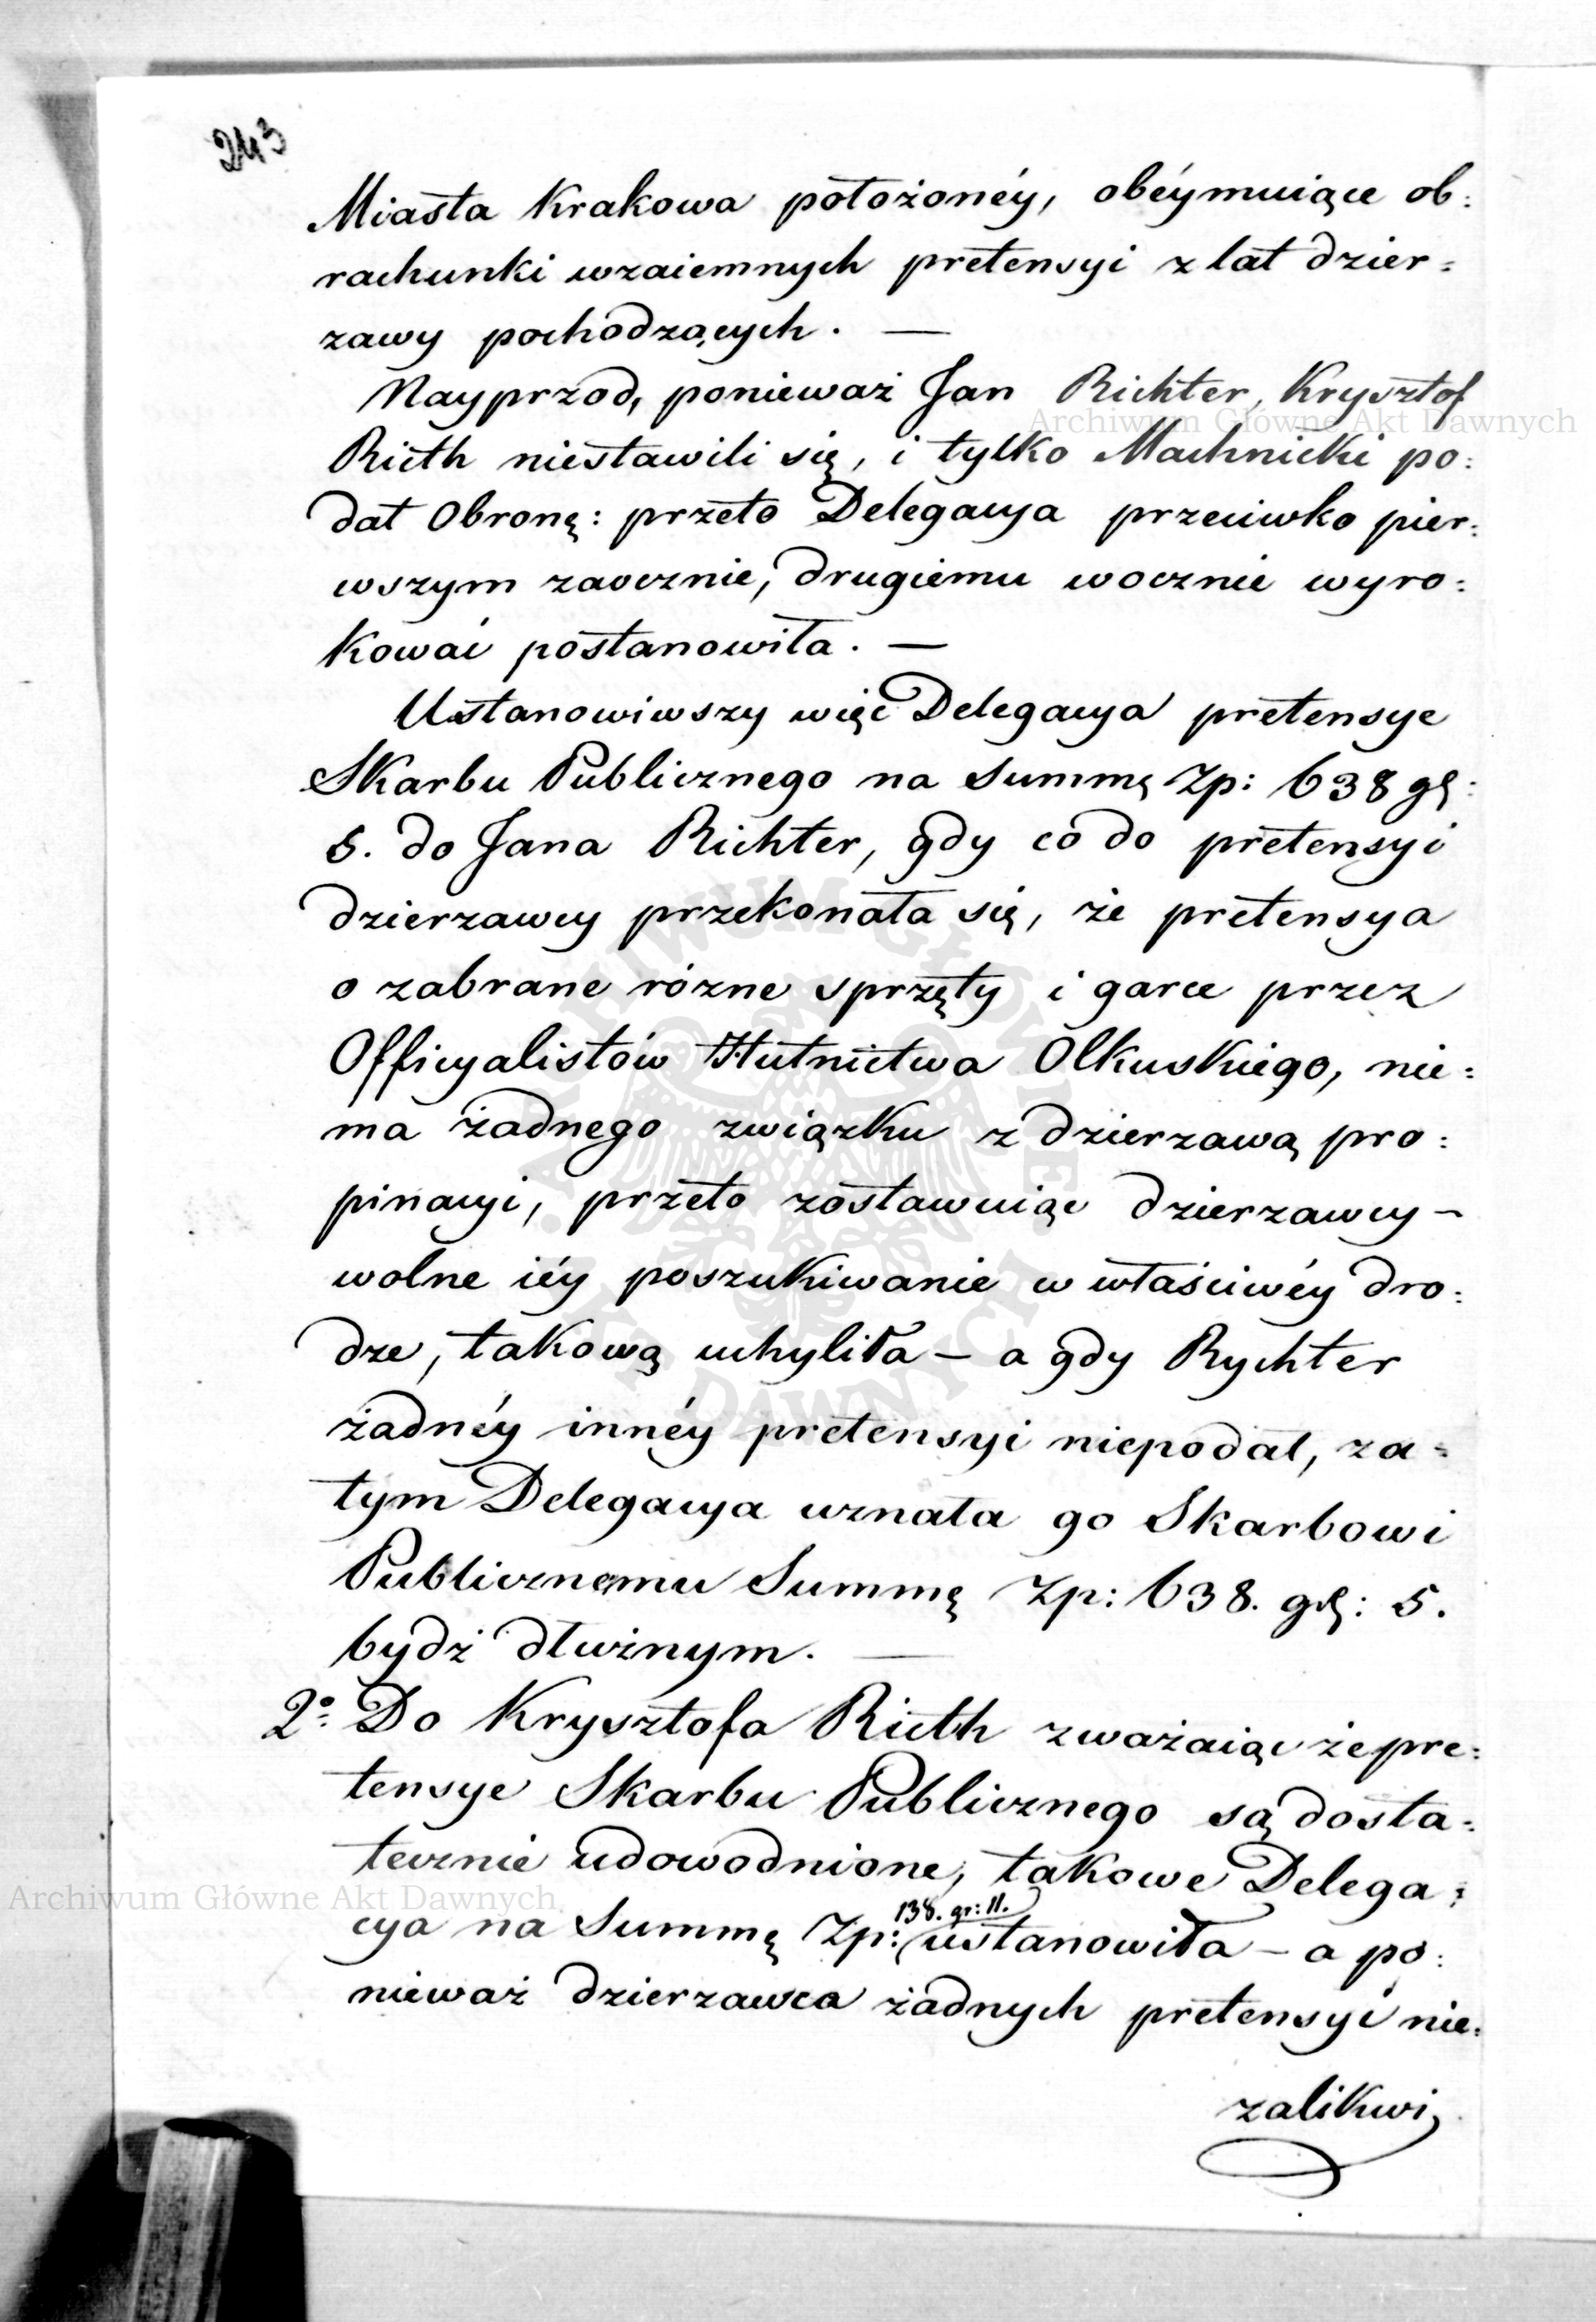 243
Miasta Krakowa położonéy, obéymuiące ob:
rachunki wzaiemnych pretensyi z lat dzier=
zawy pochodzących. —
Nayprzod, ponieważ Jan Richter, Krysztof
Rieth niestawili się, i tylko Machnicki po:
dał Obronę: przeto Delegacya przeciwko pier:
wszym zaocznie, drugiemu wocznie wyro:
kować postanowiła. —
Ustanowiwszy więc Delegacya pretensye
Skarbu Publicznego na Summę Zp: 638 gr:
5. do Jana Richter, gdy co do pretensyi
dzierzawcy przekonała się, że pretensya
o zabrane rózne sprzęty i garce przez
Officyalistów Hutnictwa Olkuskiego, nie:
ma żadnego związku z dzierzawą pro:
pinacyi, przeto zostawuiąc dzierzawcy —
wolne iéy poszukiwanie w właściwéy dro:
dze, takową uchyliła — a gdy Rychter
żadnéy innéy pretensyi niepodał, za=
tym Delegacya uznała go Skarbowi
Publicznemu Summę Zp: 638. gr: 5.
bydź dłużnym. —
2o Do Krysztofa Rieth zważaiąc że pre:
tensye Skarbu Publicznego są dosta:
tecznie udowodnione, takowe Delega:
cya na Summę Zp: 138. gr: 11. ustanowiła — a po:
nieważ dzierzawca żadnych pretensyi nie:
zalikwi
Archiwum Główne Akt Dawnych
Archiwum Główne Akt Dawnych
ARCHIWUM GŁÓWNE AKT DAWNYCH